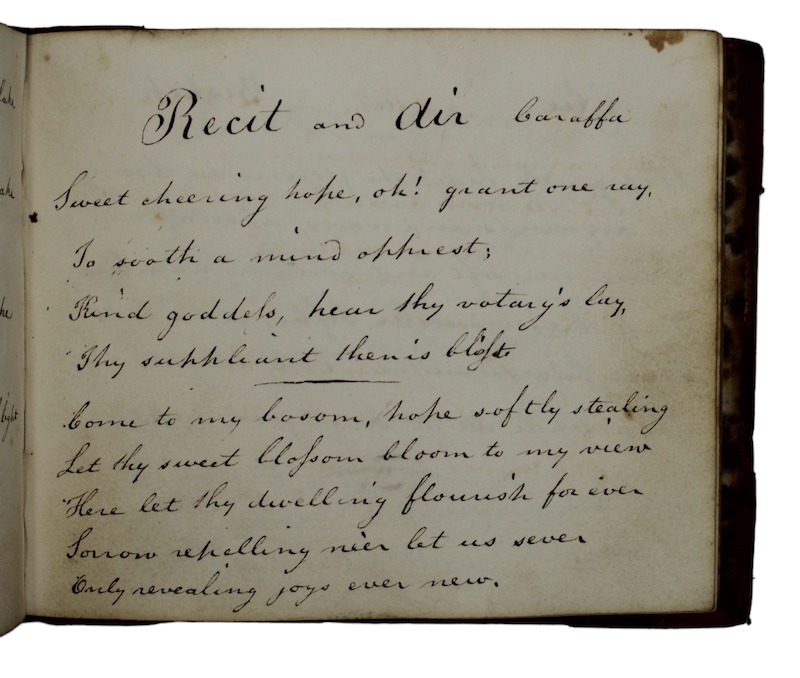 lake
ake
he
light
Recit and Air Caraffa
Sweet cheering hope, oh! grant one ray,
To sooth a mind opprest;
Kind goddess, hear thy votary's lay,
Thy suppliant then is blest
Come to my bosom, hope softly stealing
Let thy sweet blossom bloom to my view
Here let thy dwelling flourish for ever
Sorrow repelling ne'er let us sever
Only revealing joys ever new.